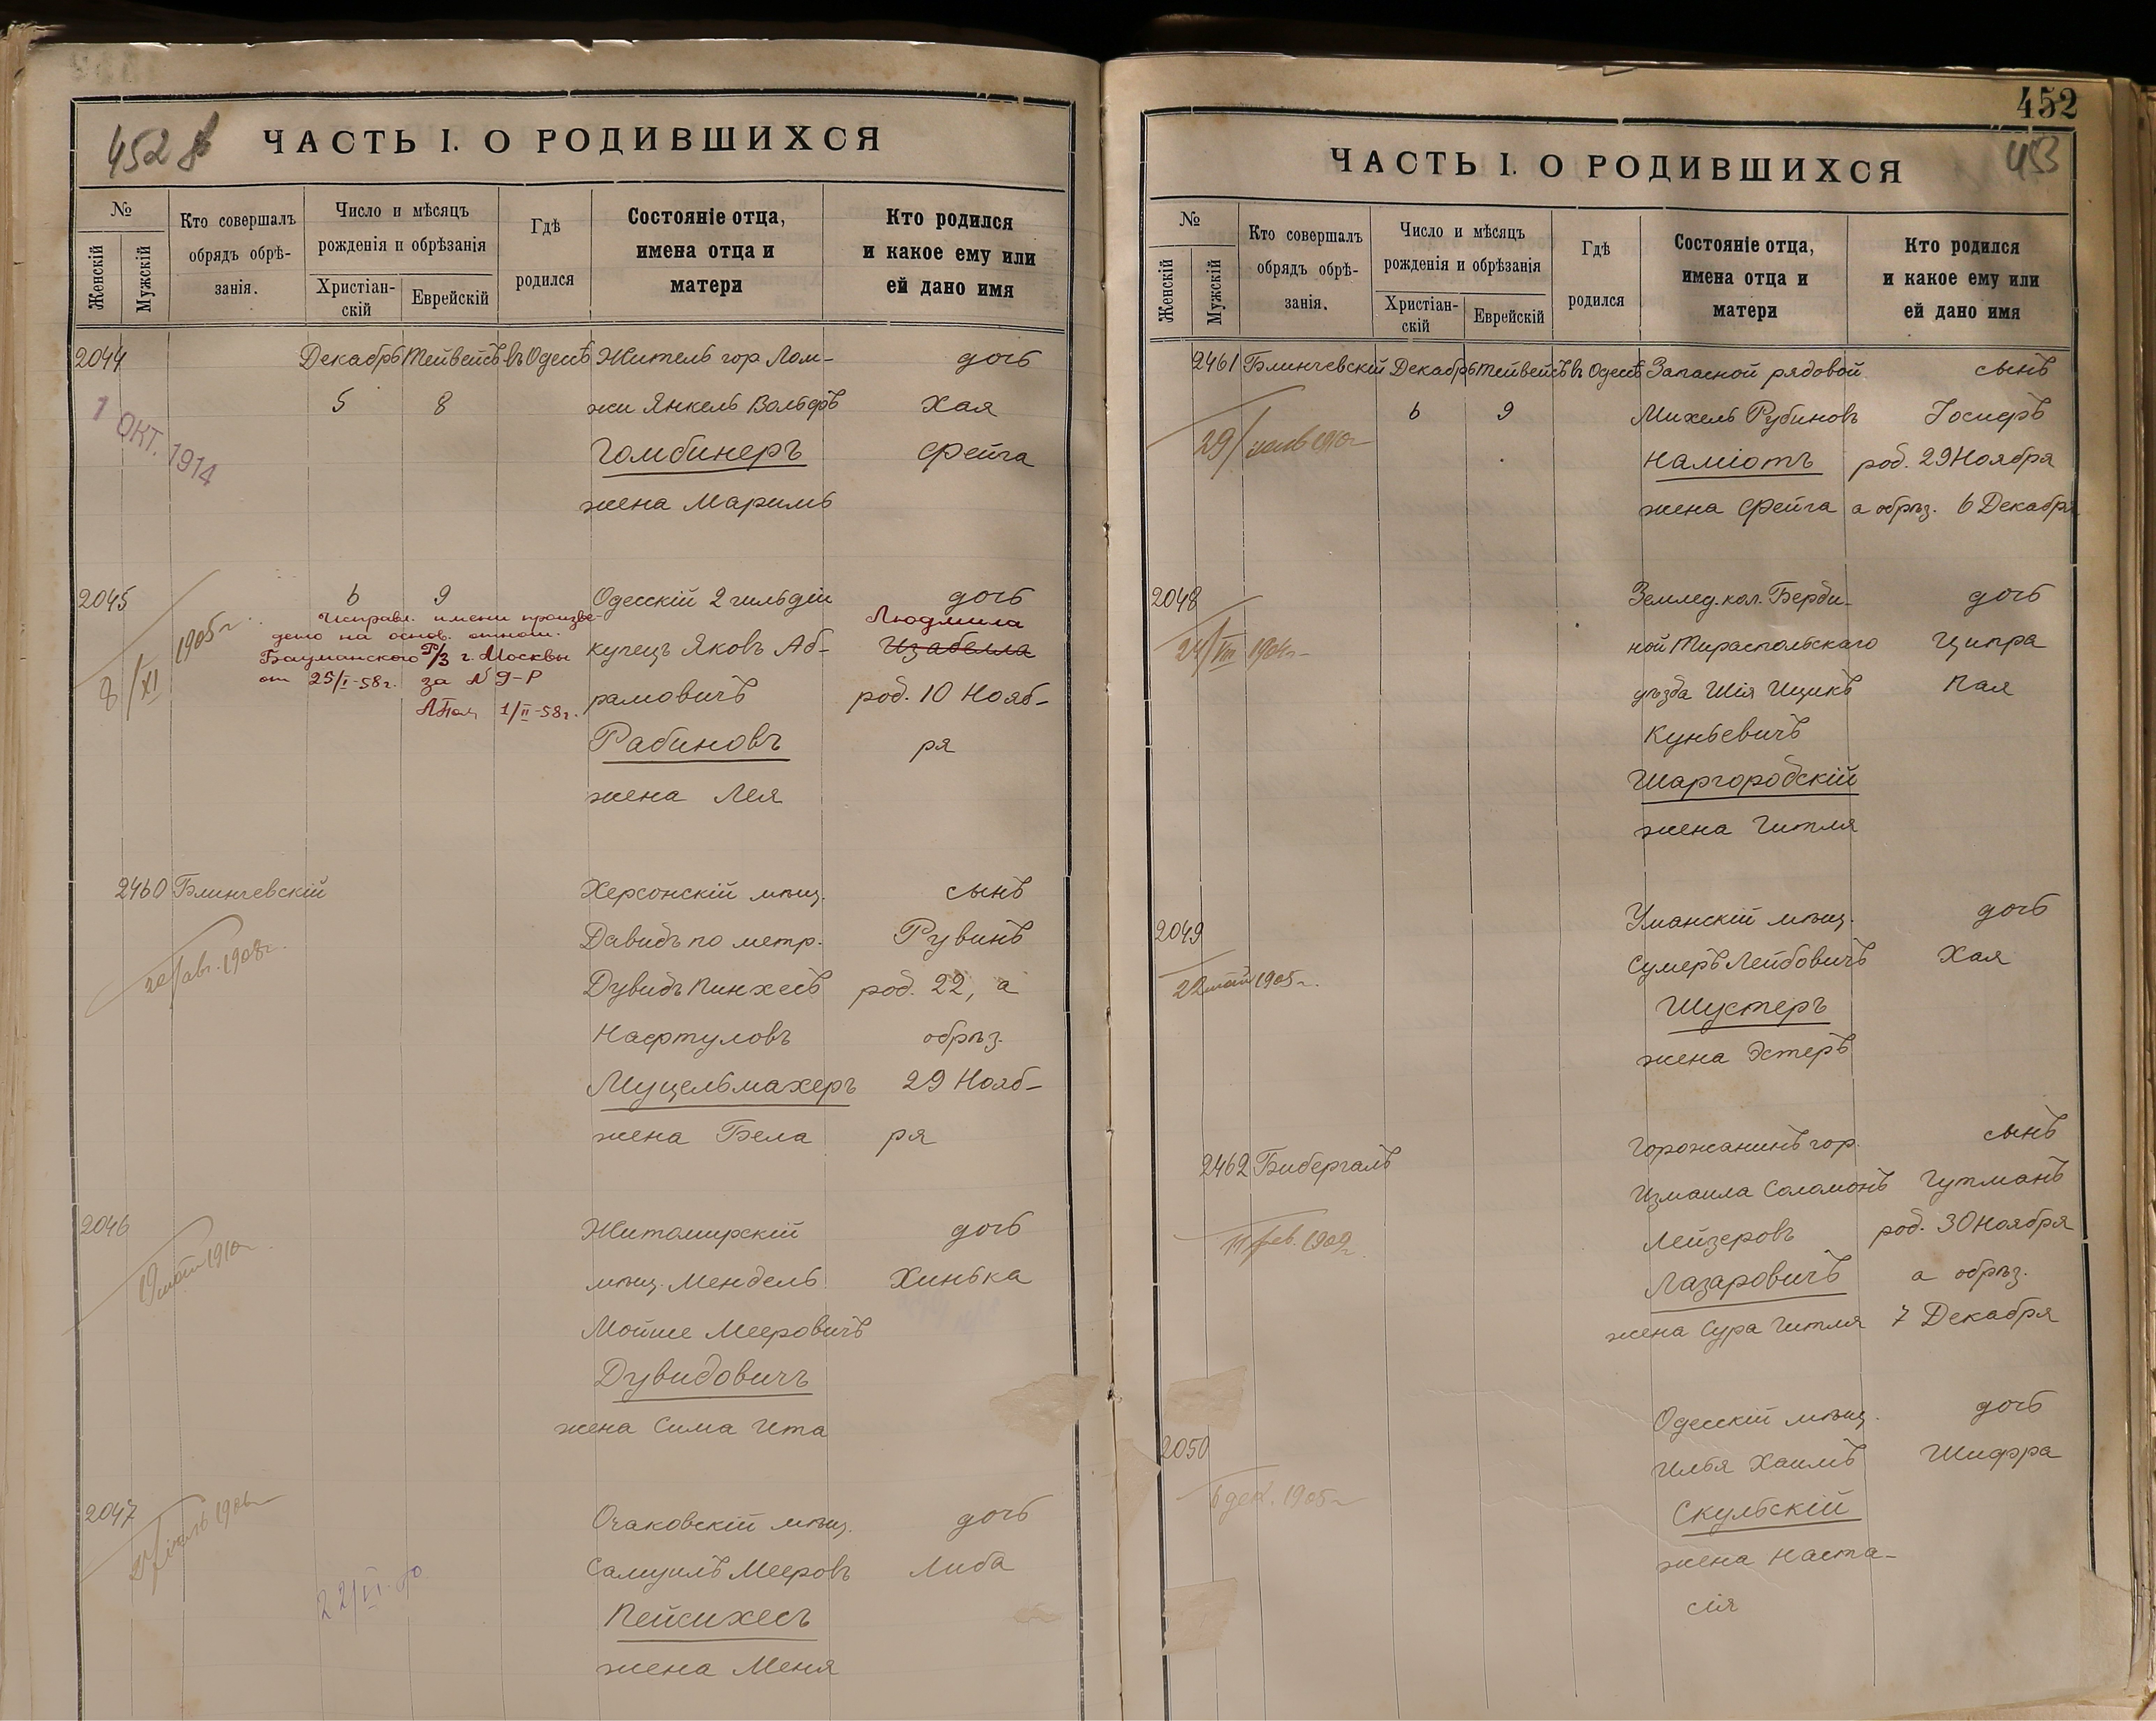 452 об
ЧАСТЬ I. О РОДИВШИХСЯ
№
Женскій
Мужскій
Кто совершалъ обрядъ обрѣ-занія.
Число и мѣсяцъ рожденія и обрѣзанія
Христіан-скій
Еврейскій
Гдѣ родился
Состояніе отца, имена отца и матери
Кто родился и какое ему или ей дано имя
2044 Декабрь Тейвейсъ въ Одессѣ Житель гор Лом- дочь
5 8 жи Янкель Вольфъ Хая
1 ОКТ. 1914
Гомбинеръ Фейга
жена Маримъ
2045 6 9 Одесскій 2 гильдіи дочь
Исправл. имени произве-
дено на основ. отнош.
Бауманского Р/З г. Москвы
от 25/I-58г. за № 9-Р
1/II-58г.
8/XI 1905г.
Людмила
купецъ Яковъ Аб- Изабелла
рамовичъ род. 10 Нояб-
Рабиновъ ря
жена Лея
2460 Блинчевскій Херсонскій мѣщ. сынъ
20/авг. 1908г.
Давидъ по метр. Рувинъ
Дувидъ Пинхесъ род. 22, а
Нафтуловъ обрѣз.
Муцельмахеръ 29 Нояб-
жена Бела ря
2046 Житомирскій дочь
19 мая 1910г.
мѣщ. Мендель Хинька
Мойше Мееровичъ
Дувидовичъ
жена Сима Ита
2047 Очаковскій мѣщ. дочь
22/VI
Самуилъ Мееровъ Либа
Пейсихесъ
жена Меня
452
453
ЧАСТЬ I. О РОДИВШИХСЯ
№
Женскій
Мужскій
Кто совершалъ обрядъ обрѣ-занія.
Число и мѣсяцъ рожденія и обрѣзанія
Христіан-скій
Еврейскій
Гдѣ родился
Состояніе отца, имена отца и матери
Кто родился и какое ему или ей дано имя
2461 Блинчевскій Декабрь Тейвейсъ въ Одессѣ Запасной рядовой сынъ
6 9 Михель Рубиновъ Іосифъ
Наміотъ род. 29 Ноября
жена Фейга а обрѣз. 6 Декабря
2048 Землед. кол. Берди- дочь
24/VIII
ной Тираспольскаго Ципра
уѣзда Шія Ицикъ Пая
Куньевичъ
Шаргородскій
жена Гитля
2049 Уманскій мѣщ. дочь
22 мая 1905г.
Сумеръ Лейбовичъ Хая
Шустеръ
жена Эстеръ
2462 Бибергалъ Горожанинъ гор. сынъ
11 фев. 1909г.
Измаила Соломонъ Гутманъ
Лейзеровъ род. 30 Ноября
Лазаровичъ а обрѣз.
жена Сура Гитля 7 Декабря
2050 Одесскій мѣщ. дочь
6 дек. 1905г.
Илья Хаимъ Шифра
Скульскій
жена Наста-
сія